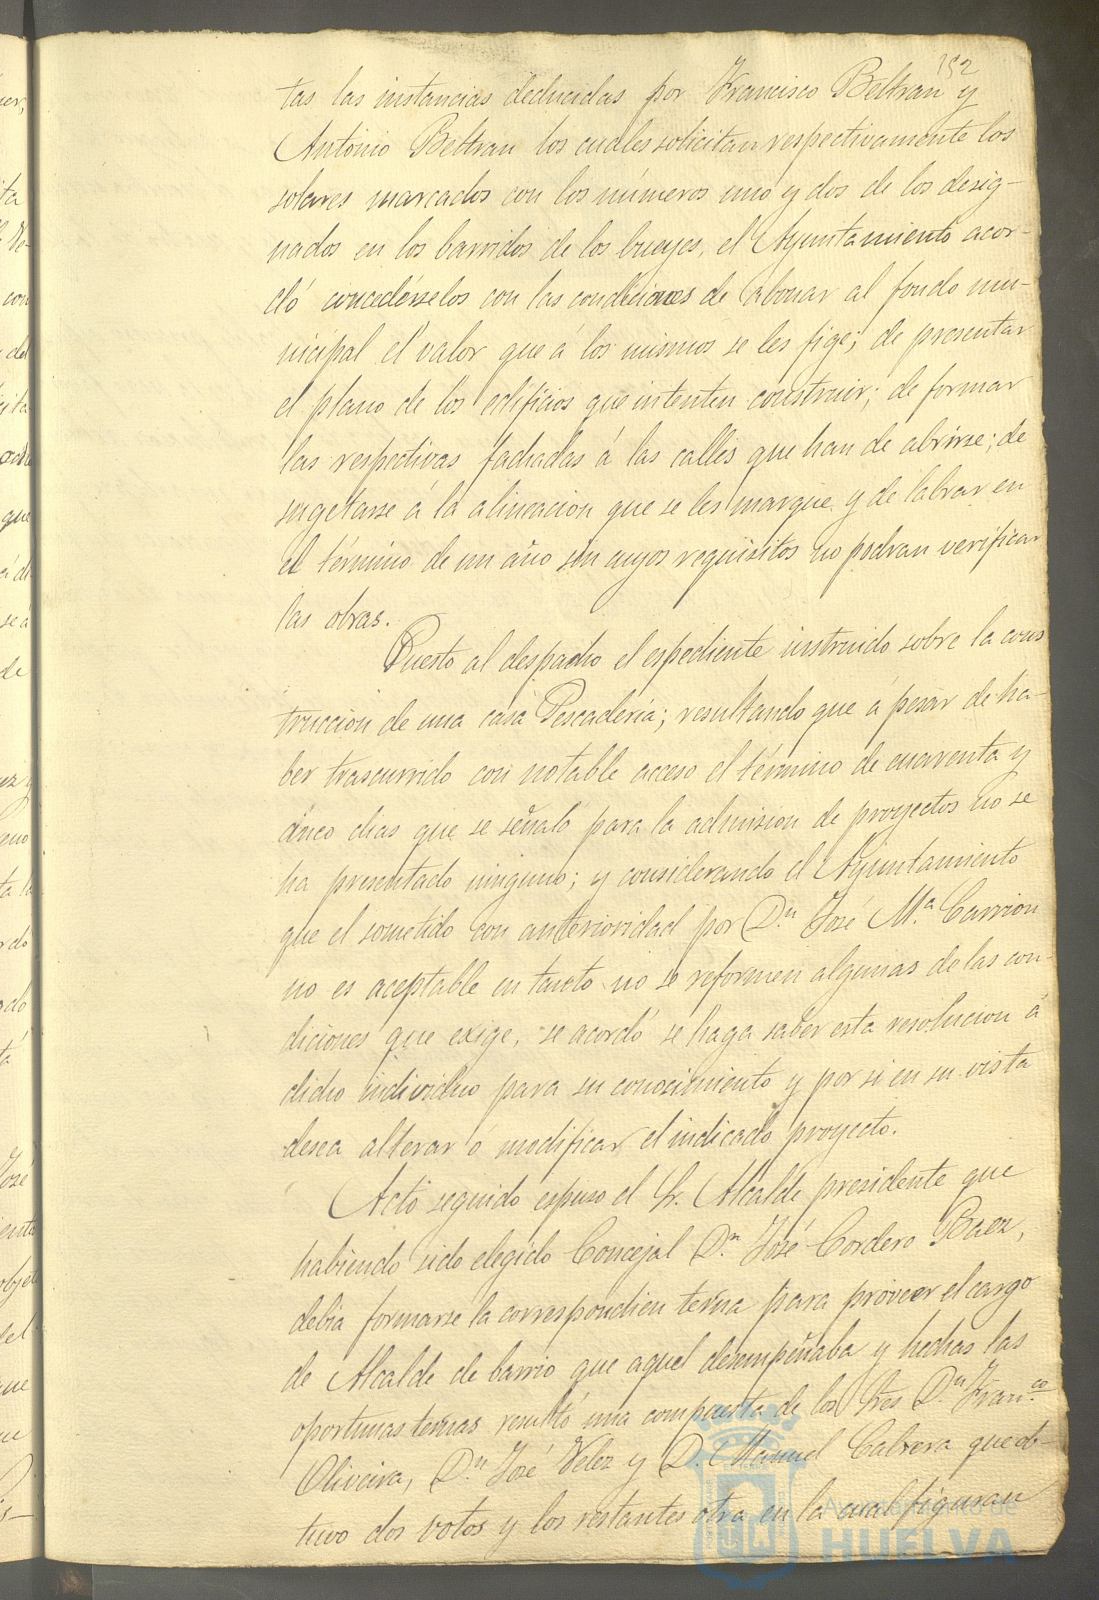 152
tas las instancias deducidas por Francisco Beltran y
Antonio Beltran los cuales solicitan respectivamente los
solares marcados con los números uno y dos de los desig-
nados en los barridos de los bueyes, el Ayuntamiento acor-
dó concedérselos con las condiciones de abonar al fondo mu-
nicipal el valor que á los mismos se les fige; de presentar
el plano de los edificios que intenten construir; de formar
las respectivas fachadas á las calles que han de abrirse; de
sugetarse á la alineacion que se les marque y de labrar en
el término de un año sin cuyos requisitos no podran verificar
las obras.
Puesto al despacho el espediente instruido sobre la cons
truccion de una casa Pescaderia; resultando que á pesar de ha-
ber trascurrido con notable acceso el término de cuarenta y
cinco dias que se señaló para la admision de proyectos no se
ha presentado ninguno; y considerando el Ayuntamiento
que el sometido con anterioridad por D.n José M.a Carrion
no es aceptable en tanto no se reformen algunas de las con-
diciones que exige, se acordó se haga saber esta resolucion á
dicho individuo para su conocimiento y por si en su vista
desea alterar ó modificar el indicado proyecto.
Acto seguido espuso el Sr. Alcalde presidente que
habiendo sido elegido Concejal D.n José Cordero Baez,
debia formarse la correspondien terna para proveer el cargo
de Alcalde de barrio que aquel desempeñaba y hechas las
oportunas ternas resultó una compuesta de los Sres D.n Fran.co
Oliveira, D.n José Velez y D. Manuel Cabrera que ob-
tuvo dos votos y los restantes otra en la cual figuran
Ayuntamiento de
HUELVA